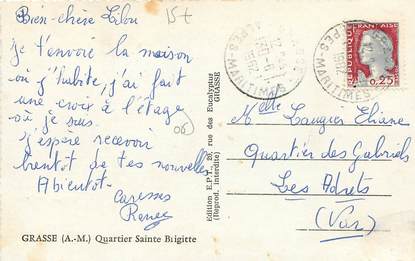 Bien-chère Lilou
15+
je t'envoie la maison
où j'habite, j'ai fait
une croix à l'étage
où je suis.
06
j'espère recevoir
bientôt de tes nouvelles
A bientôt-
Caresses
Renée
GRASSE (A.-M.) Quartier Sainte Brigitte
Edition E.P.T., 29, rue des Eucalyptus
(Reprod. interdite) GRASSE
GRASSE
ALPES-MARITIMES
REPUBLIQUE FRANÇAISE
0,25
Melle Laugier Eliane
Quartier des Gabriels
Les Adrets
(Var)